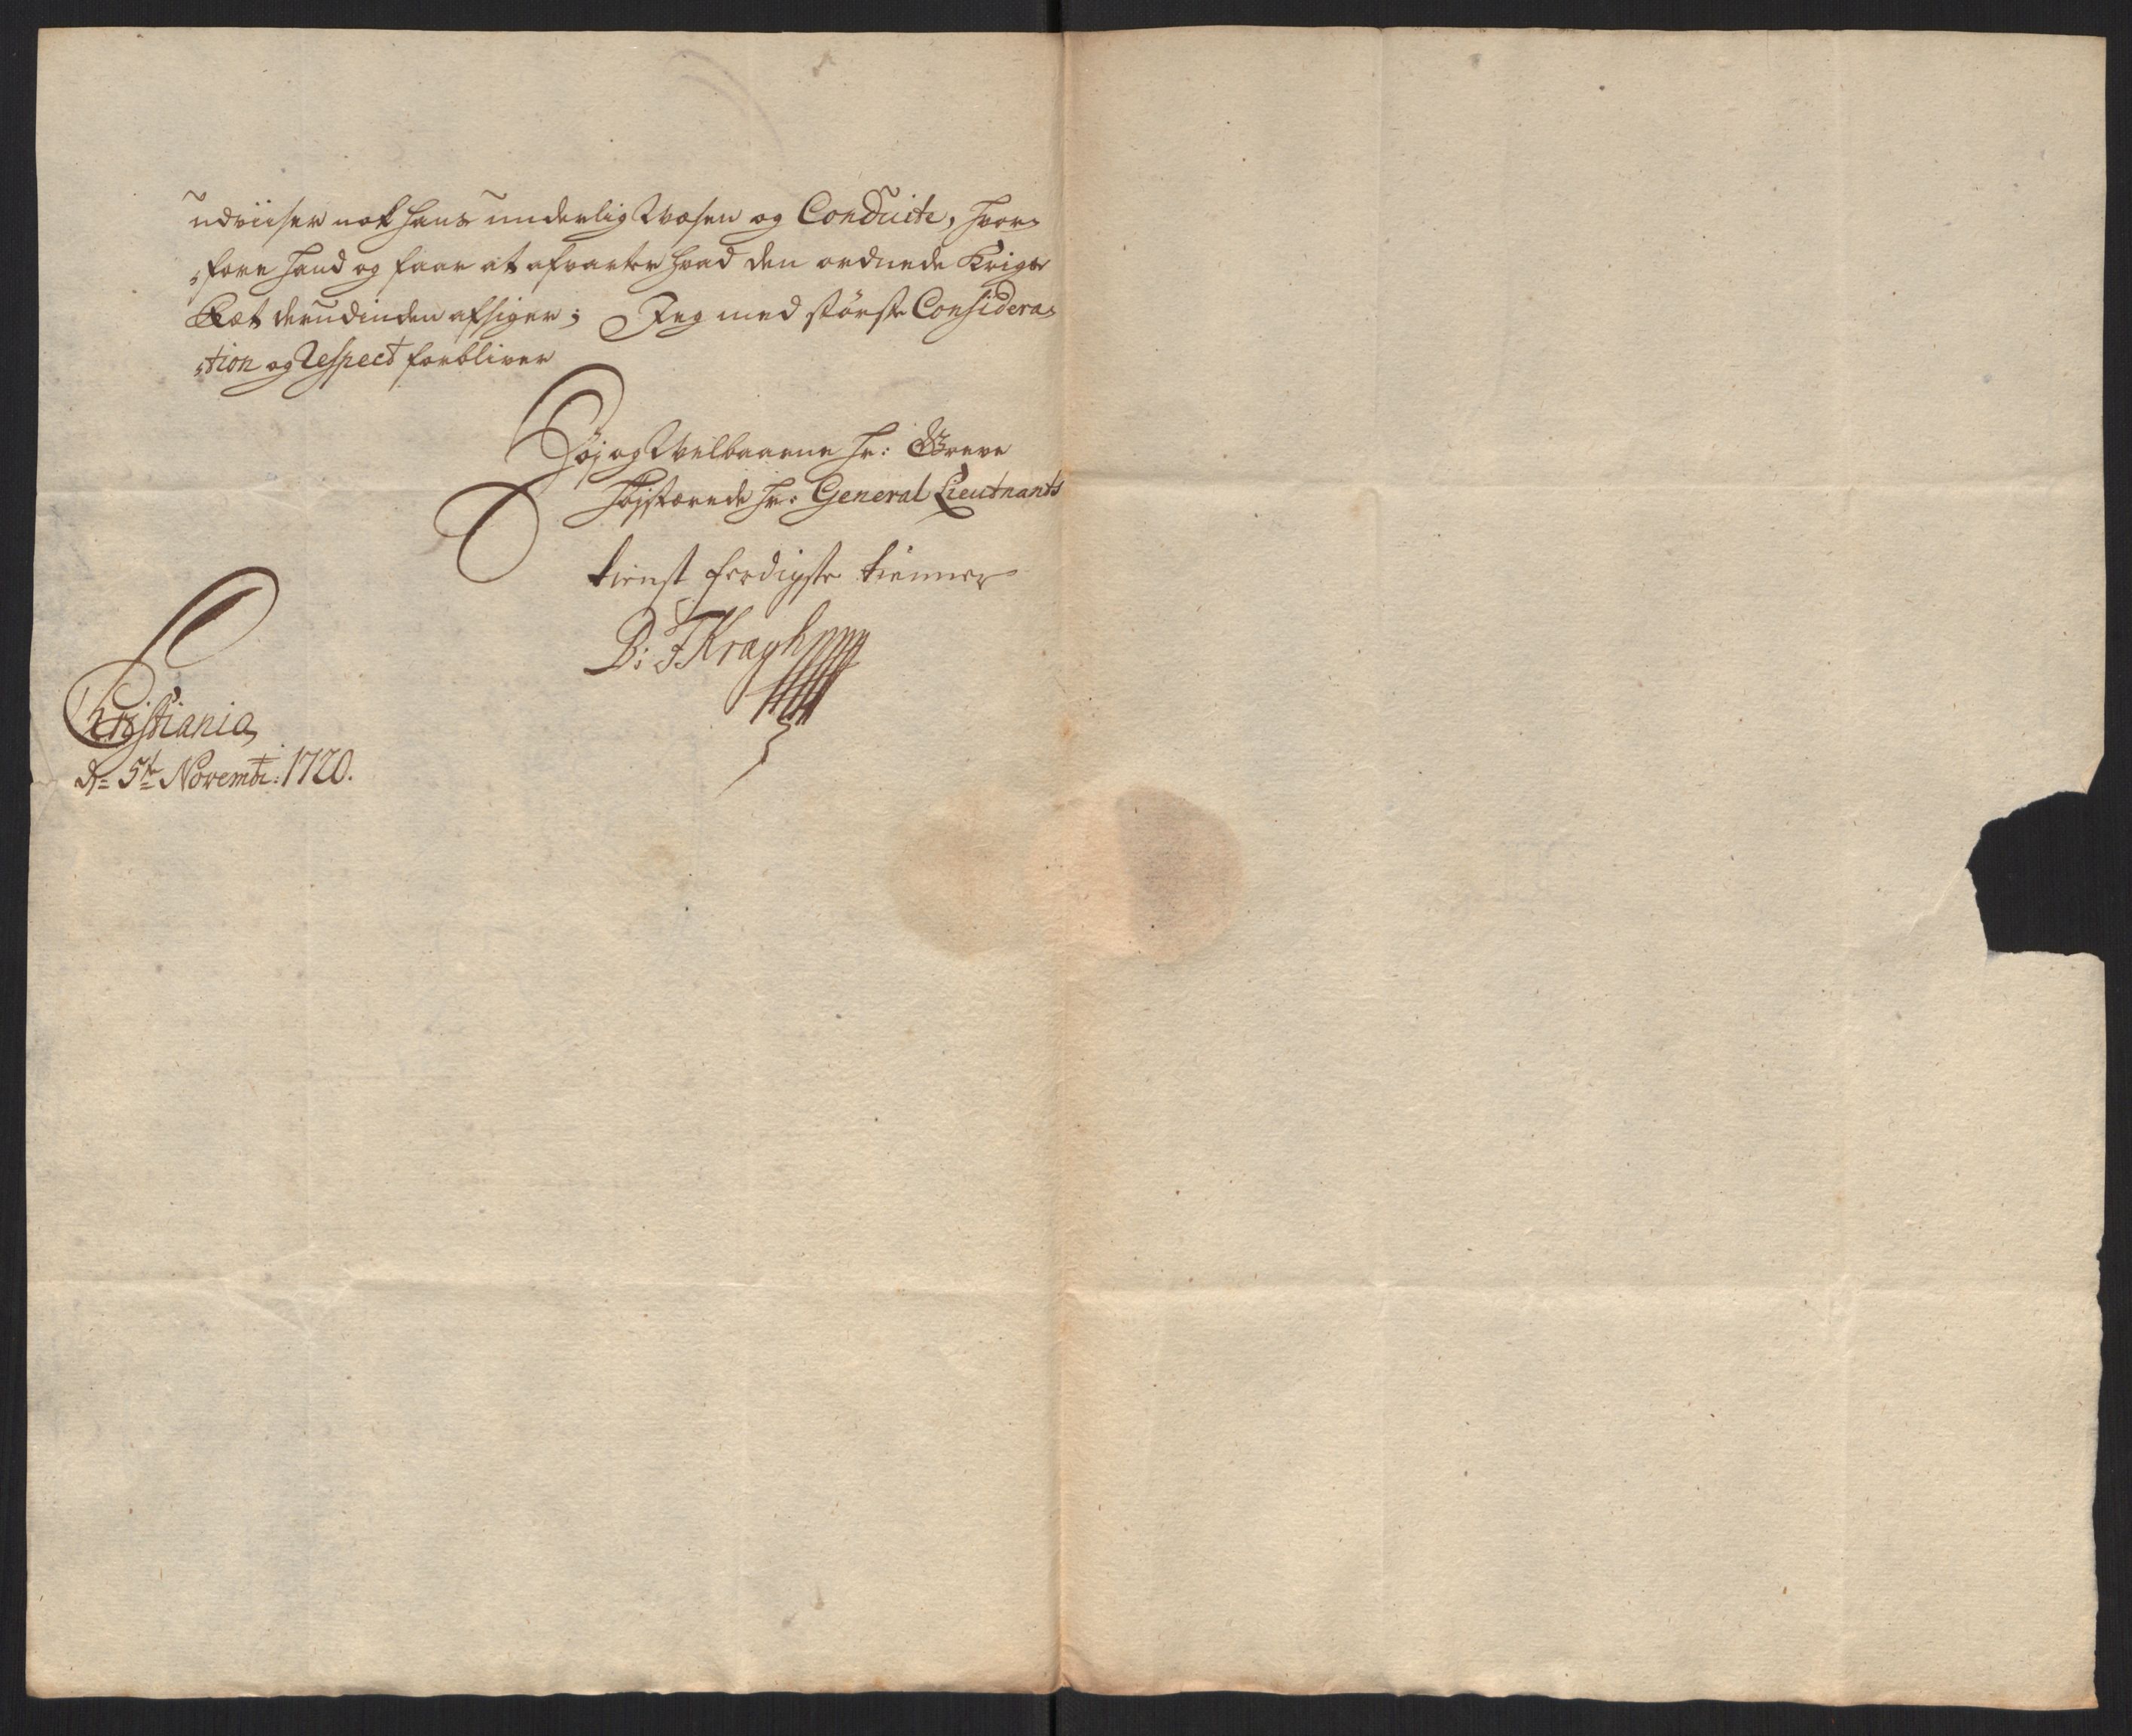 udviiser nok hans underlig Wæsen og Conduite, hvor-
-fore hand og faar at afvarte hvad den ordnede Krigs
Ræt derudinden afsiger; Jeg med störste Considera-
-tion og Respect forbliver
Høy og Welbaarne Hr: Greve
Højstærede Hr: General Lieutnants
tienst ferdigste tienner
B: F Kragh
Christiania
d= 5te Novembr: 1720.